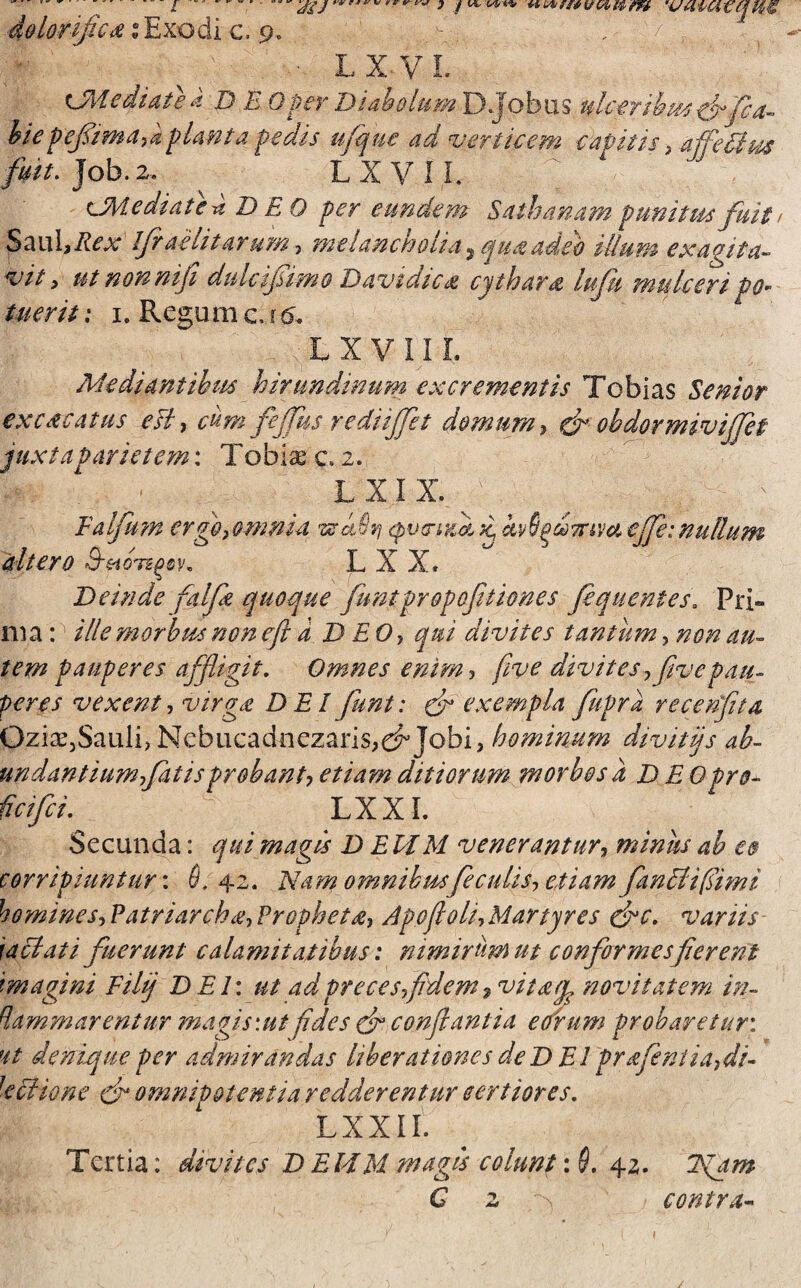 dolorificæ : Exodi c. 9.
LXVI.
Mediatè à D E O per Diabolum D. Jobus ulceribus & sca-
bie peßima, à planta pedis usque ad verticem capitis, affectus
fuit. Job. 2. LXVII.
Mediatè à D E O per eundem Sathanam punitus fuit
Saul, Rex Israëlitarum, melancholia, quæ adeò illum exagita-
vit, ut non nisi dulcißimo Davidicæ cytharæ lusu mulceri po-
tuerit: 1. Regum c. 16.
LXVIII.
Mediantibus hirundinum excrementis Tobias Senior
excæcatus est, cùm fessus rediisset domum, & obdormivisset
juxta parietem: Tobiæ c. 2.
LXIX.
Falsum ergò, omnia πάθη φυσικὰ κỳ ἀνθρώπινα esse: nullum
altero θειότερον. LXX.
Deinde falsæ quoque sunt propositiones sequentes. Pri-
ma: ille morbus non est à D E O, qui divites tantùm, non au-
tem pauperes affligit. Omnes enim, sive divites, sive pau-
peres vexent, virgæ D E I sunt: & exempla suprà recensita
Oziæ, Sauli, Nebucadnezaris, & Jobi, hominum divitijs ab-
undantium, satis probant, etiam ditiorum morbos à D E O pro-
ficisci. LXXI.
Secunda: qui magis D EUM venerantur, minùs ab eo
corripiuntur: θ. 42. Nam omnibus seculis, etiam sanctißimi
homines, Patriarchæ, Prophetæ, Apostoli, Martyres &c. variis
jactati fuerunt calamitatibus: nimirùm ut conformes fierent
imagini Filij D E I: ut ad preces, fidem, vitæq; novitatem in-
flammarentur magis: ut fides & constantia eorum probaretur:
ut denique per admirandas liberationes de D E I præsentia, di-
lectione & omnipotentia redderentur certiores.
LXXII.
Tertia: divites D EUM magis colunt: θ. 42. Nam
G 2 contra-